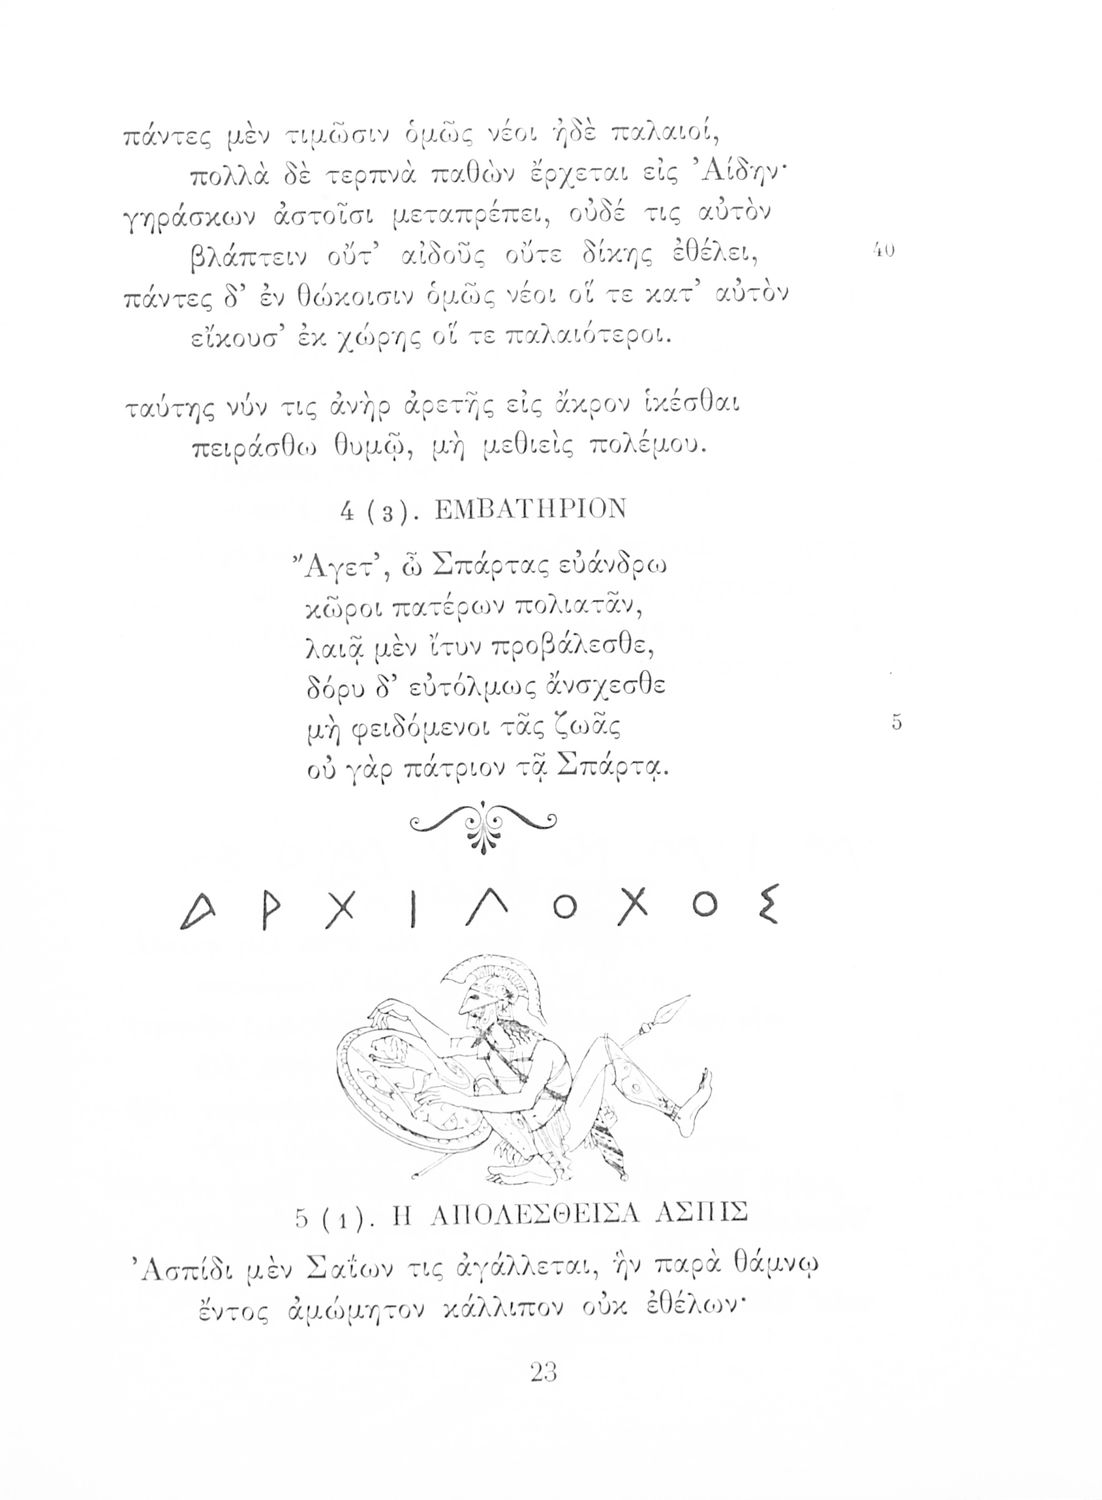 πάντες μὲν τιμῶσιν ὁμῶς νέοι ἠδὲ παλαιοί,
πολλὰ δὲ τερπνὰ παθὼν ἔρχεται εἰς Ἀίδην·
γηράσκων ἀστοῖσι μεταπρέπει, οὐδέ τις αὐτὸν
βλάπτειν οὔτ’ αἰδοῦς οὔτε δίκης ἐθέλει, 40
πάντες δ’ ἐν θώκοισιν ὁμῶς νέοι οἵ τε κατ’ αὐτὸν
εἴκουσ’ ἐκ χώρης οἵ τε παλαιότεροι.
ταύτης νύν τις ἀνὴρ ἀρετῆς εἰς ἄκρον ἱκέσθαι
πειράσθω θυμῷ, μὴ μεθιεὶς πολέμου.
4 (3). ΕΜΒΑΤΗΡΙΟΝ
Ἄγετ’, ὦ Σπάρτας εὐάνδρω
κῶροι πατέρων πολιατᾶν,
λαιᾷ μὲν ἴτυν προβάλεσθε,
δόρυ δ’ εὐτόλμως ἄνσχεσθε
μὴ φειδόμενοι τᾶς ζωᾶς 5
οὐ γὰρ πάτριον τᾷ Σπάρτᾳ.
ΑΡΧΙΛΟΧΟΣ
5 (1). Η ΑΠΟΛΕΣΘΕΙΣΑ ΑΣΠΙΣ
Ἀσπίδι μὲν Σαΐων τις ἀγάλλεται, ἣν παρὰ θάμνῳ
ἔντος ἀμώμητον κάλλιπον οὐκ ἐθέλων·
23